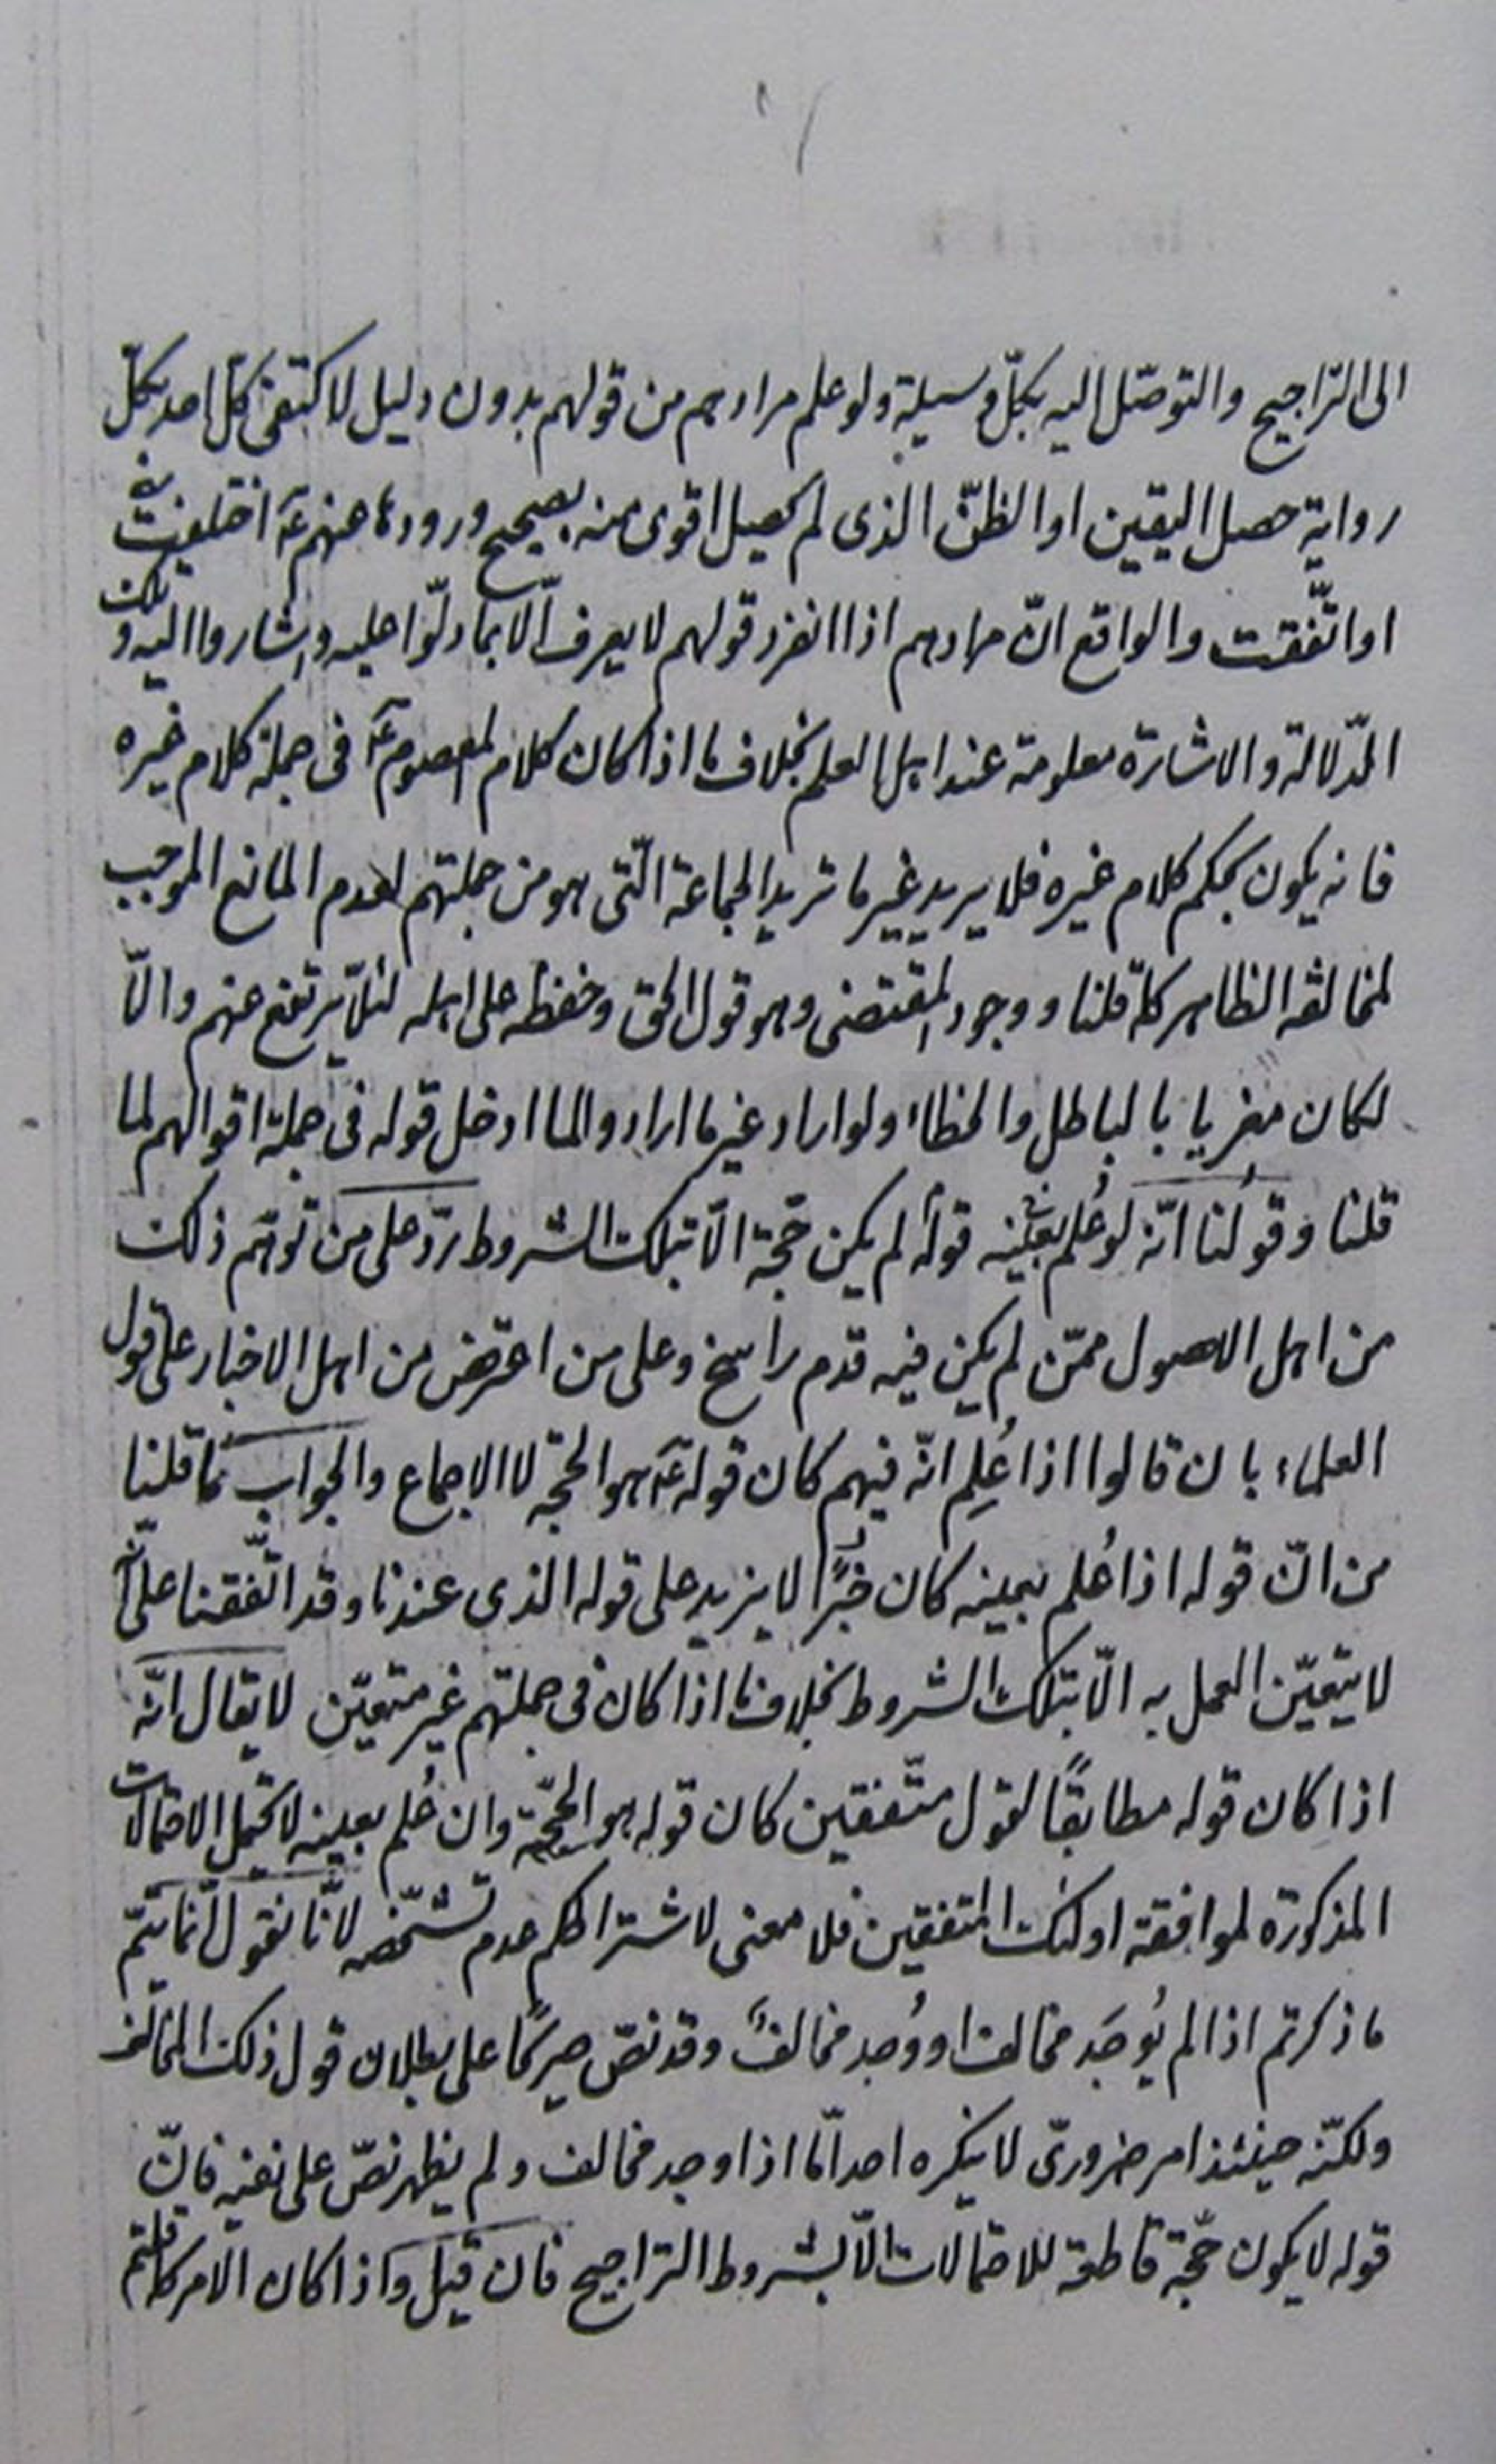 الى التراجيح والتوصّل اليه بكلّ وسيلة ولو علم مرادهم من قولهم بدون دليل لاكتفى كلّ احد بكلّ
رواية حصل اليقين او الظنّ الذى لم يحصل اقوى منه بصحيح ورودها عنهم عۤ اختلفت
او اتّفقت والواقع انّ مرادهم اذا انفرد قولهم لا يعرف الّا بما دلّوا عليه واشاروا اليه وتلك
الدّلالة والاشارة معلومة عند اهل العلم بخلاف ما اذا كان كلام المعصوم عۤ فى جملة كلام غيره
فانه يكون بحكم كلام غيره فلا يريد غير ما تريد الجماعة الّتى هو من جملتهم لعدم المانع الموجب
لمخالفة الظاهر كلّا قلنا ووجود المقتضى وهو قول الحق وحفظه على اهله لئلّا يرتفع عنهم والّا
لكان مغريا بالباطل والخطاء ولو اراد غير ما ارادوا لما ادخل قوله فى جملة اقوالهم لما
قلنا وقولُنا انّه لو عُلم بعينه قوله لم يكن حجّة الّا بتلك الشروط ردّ على من توهّم ذلك
من اهل الاصول ممّن لم يكن فيه قدم راسخ وعلى من اعترض من اهل الاخبار على قول
العلماء بان قالوا اذا عُلِم انّه فيهم كان قوله عۤ هو الحجّة لا الاجماع والجواب ما قلنا
من انّ قوله اذا عُلم بعينه كان خبرًا لا يزيد على قوله الذى عندنا وقد اتّفقنا على انّه
لا يتعيّن العمل به الّا بتلك الشروط بخلاف ما اذا كان فى جملتهم غير متعيّن لا يقال انّه
اذا كان قوله مطابقًا لقول متّفقين كان قوله هو الحجّة وان عُلم بعينه لا يحتمل الاحتمالات
المذكورة لموافقة اولئك المتفقين فلا معنى لاشتراطكم عدم تشخّصه لانّا نقول انّما يتمّ
ما ذكرتم اذا لم يُوجَد مخالف او وُجد مخالفٌ وقد نصّ صريحًا على بطلان قول ذلك المخالف
ولكنّه حينئذ امر ضرورىّ لا ينكره احد امّا اذا وجد مخالف ولم يظهر نصّ على نفيه فانّ
قوله لا يكون حجّة قاطعة للاحتمالات الّا بشروط التراجيح فان قيل واذا كان الامر كما قلتم